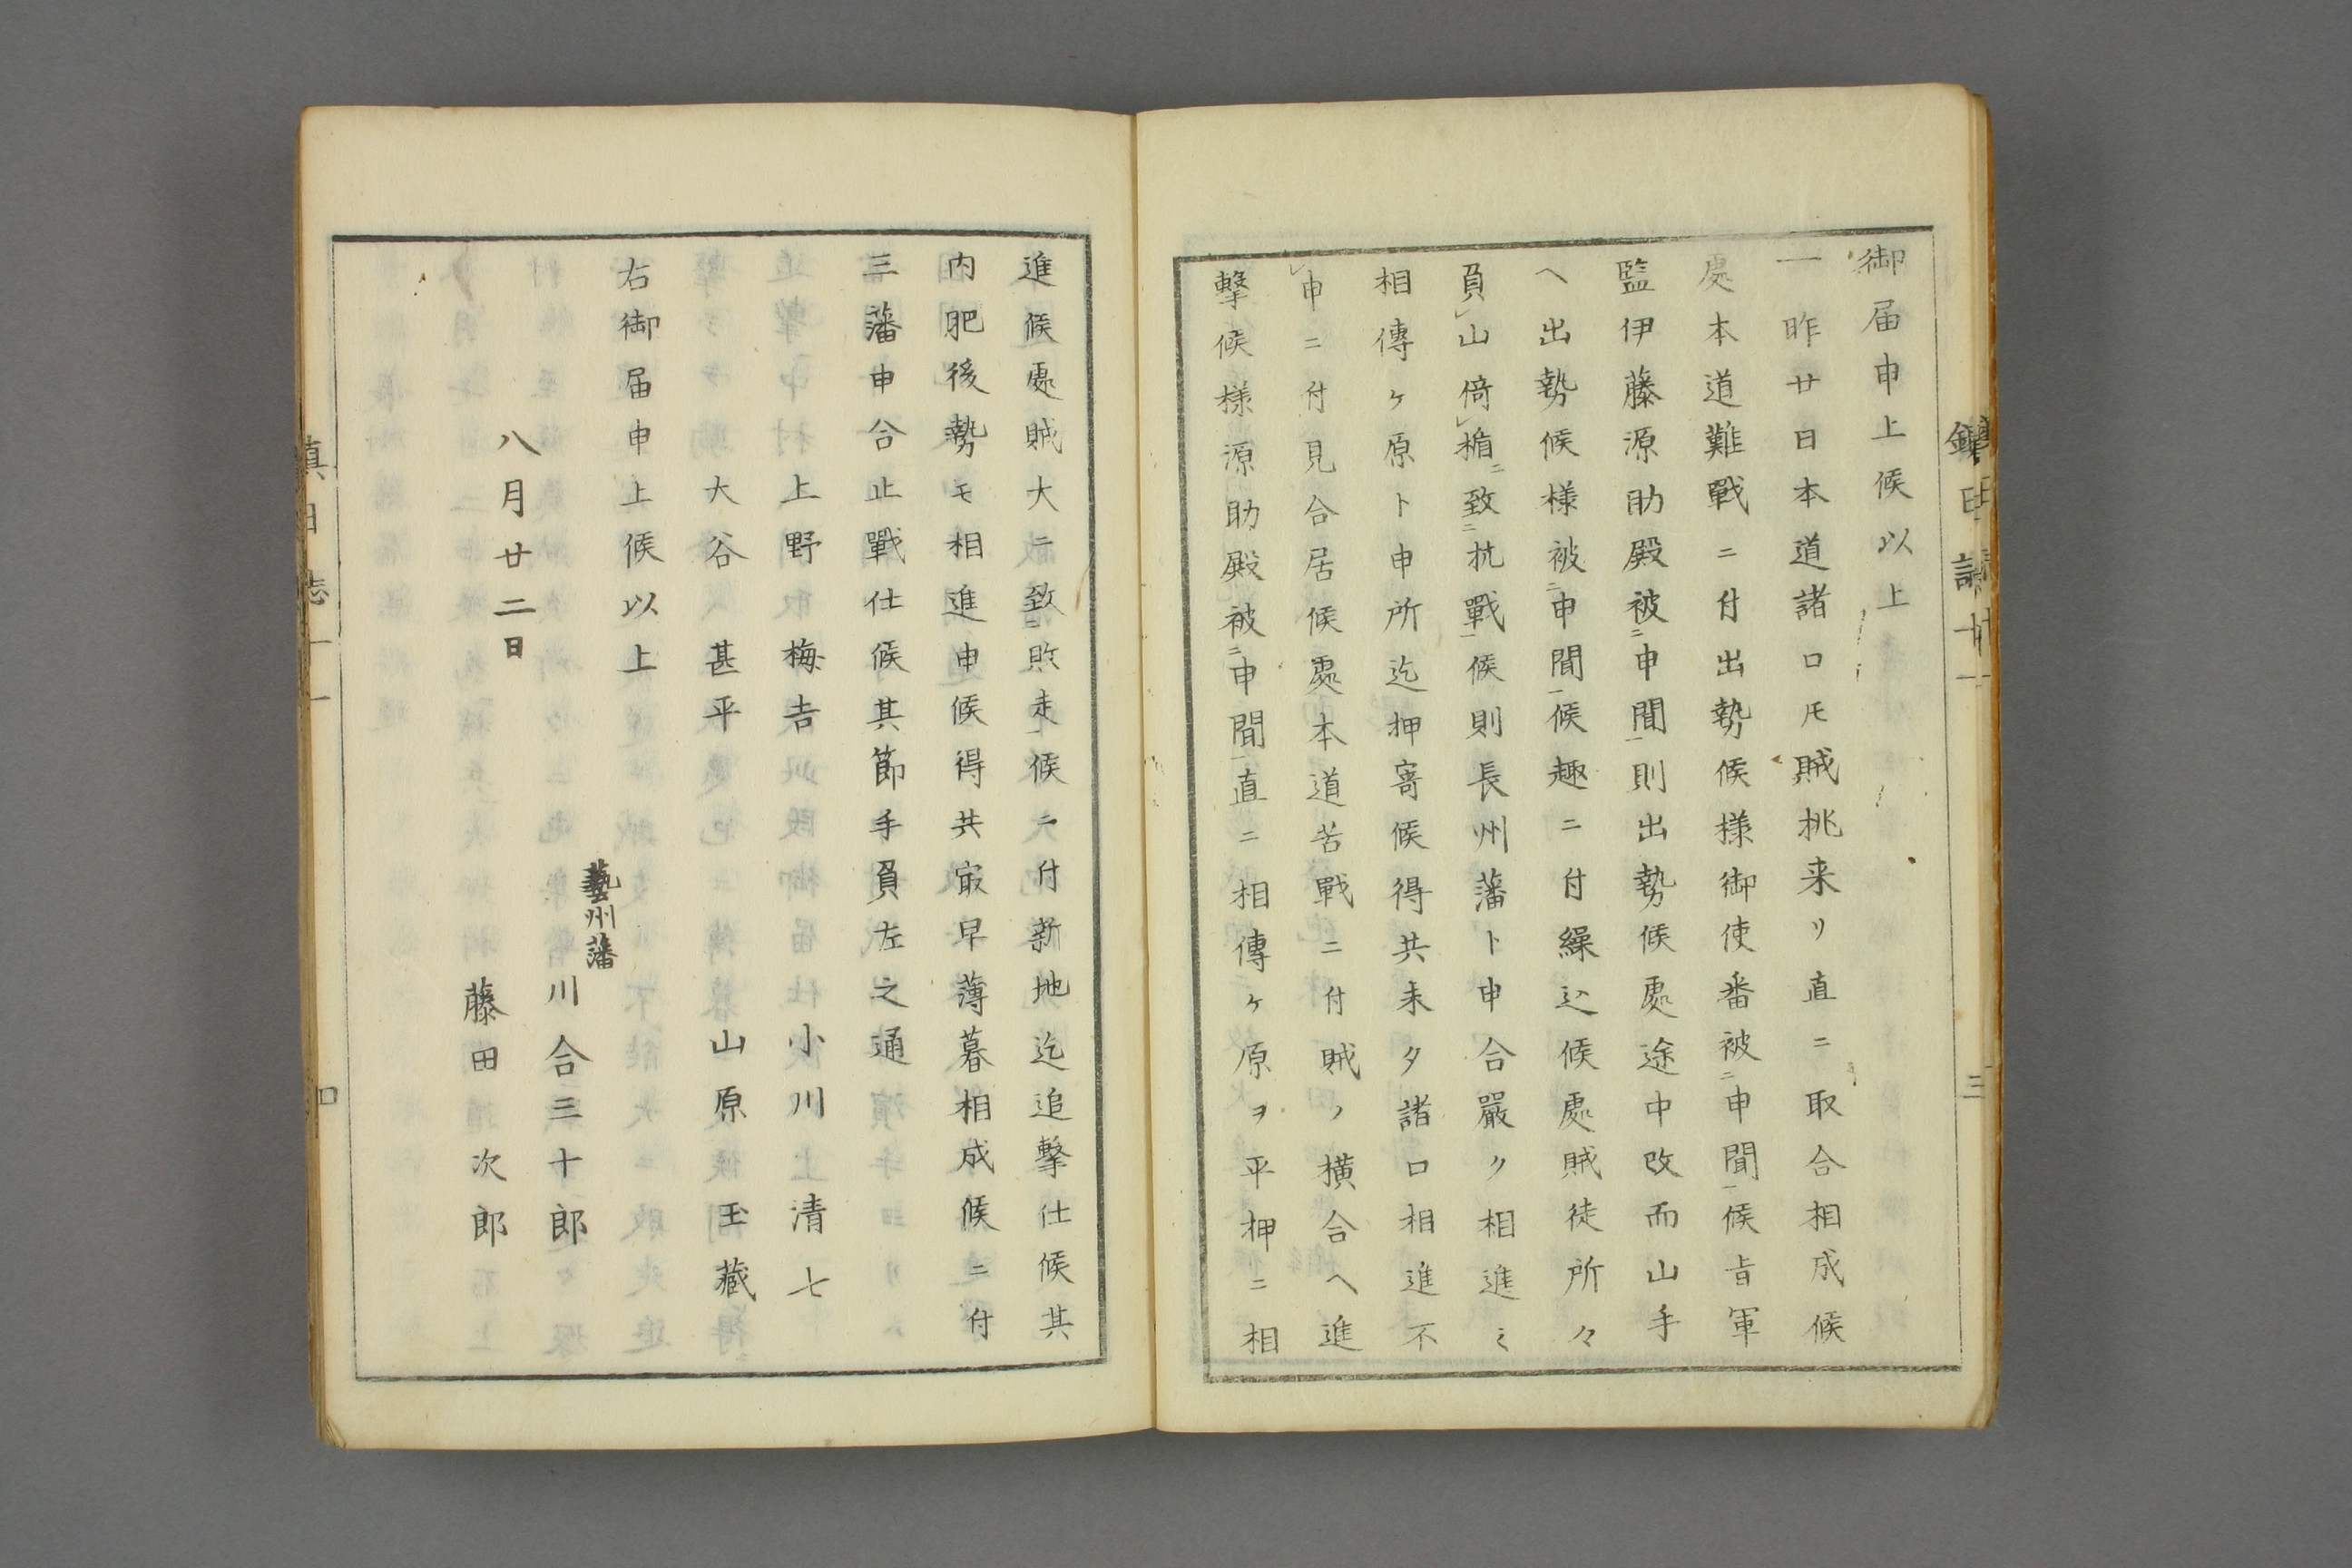 御届申上候以上
一昨廿日本道諸口モ賊挑来リ直ニ取合相成候
處本道難戰ニ付出勢候様御使番被ニ申聞一候旨軍
監伊藤源助殿被ニ申聞一則出勢候處途中改而山手
ヘ出勢候様被ニ申聞一候趣ニ付繰込候處賊徒所々
負レ山倚レ楯ニ致ニ抗戰一候則長州藩ト申合嚴ク相進ミ
相傳ケ原ト申所迄押寄候得共未タ諸口相進不
レ申ニ付見合居候處本道苦戰ニ付賊ノ横合ヘ進
擊候様源助殿被ニ申聞一直ニ相傳ケ原ヲ平押ニ相
進候處賊大ニ致ニ敗走一候ニ付新地迄追擊仕候其
内肥後勢モ相進申候得共最早薄暮相成候ニ付
三藩申合止戰仕候其節手負左之通
上野梅吉 小川清七
大谷甚平 山原玉藏
右御届申上候以上
八月廿二日
藝州藩 川合三十郎
藤田次郎
鎮日誌十一
三
四